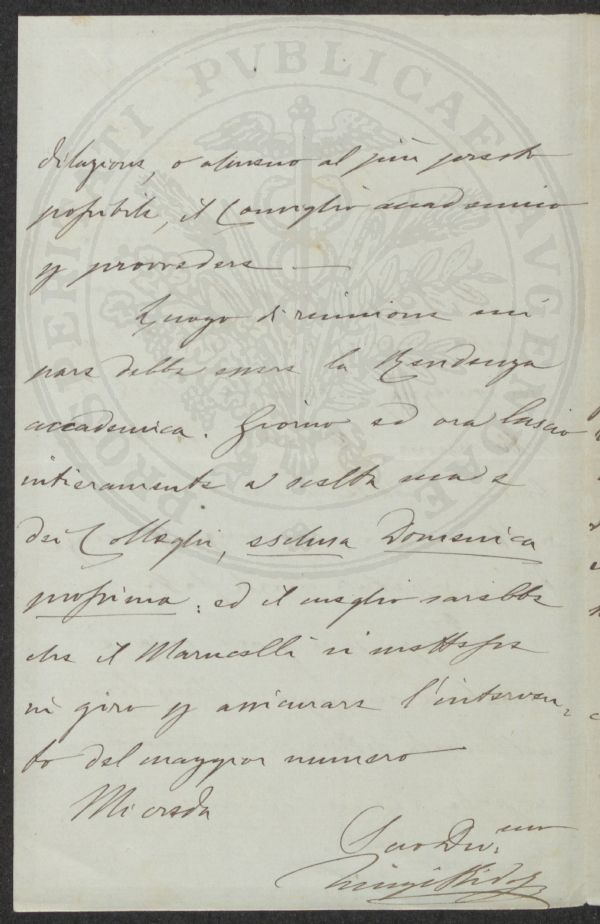 PROSPERITATI PVBLICAE AVGENDAE
dilazione, o almeno al più presto
possibile, il Consiglio accademico
p provvedere —
Luogo di riunione mi
pare debba essere la Residenza
accademica. Giorno ed ora lascio
intieramente a scelta sua e
dei Colleghi, esclusa Domenica
prossima: ed il meglio sarebbe
che il Marucelli si mettesse
in giro p assicurare l'interven-
to del maggior numero
Mi creda
Suo Dev.mo
Luigi